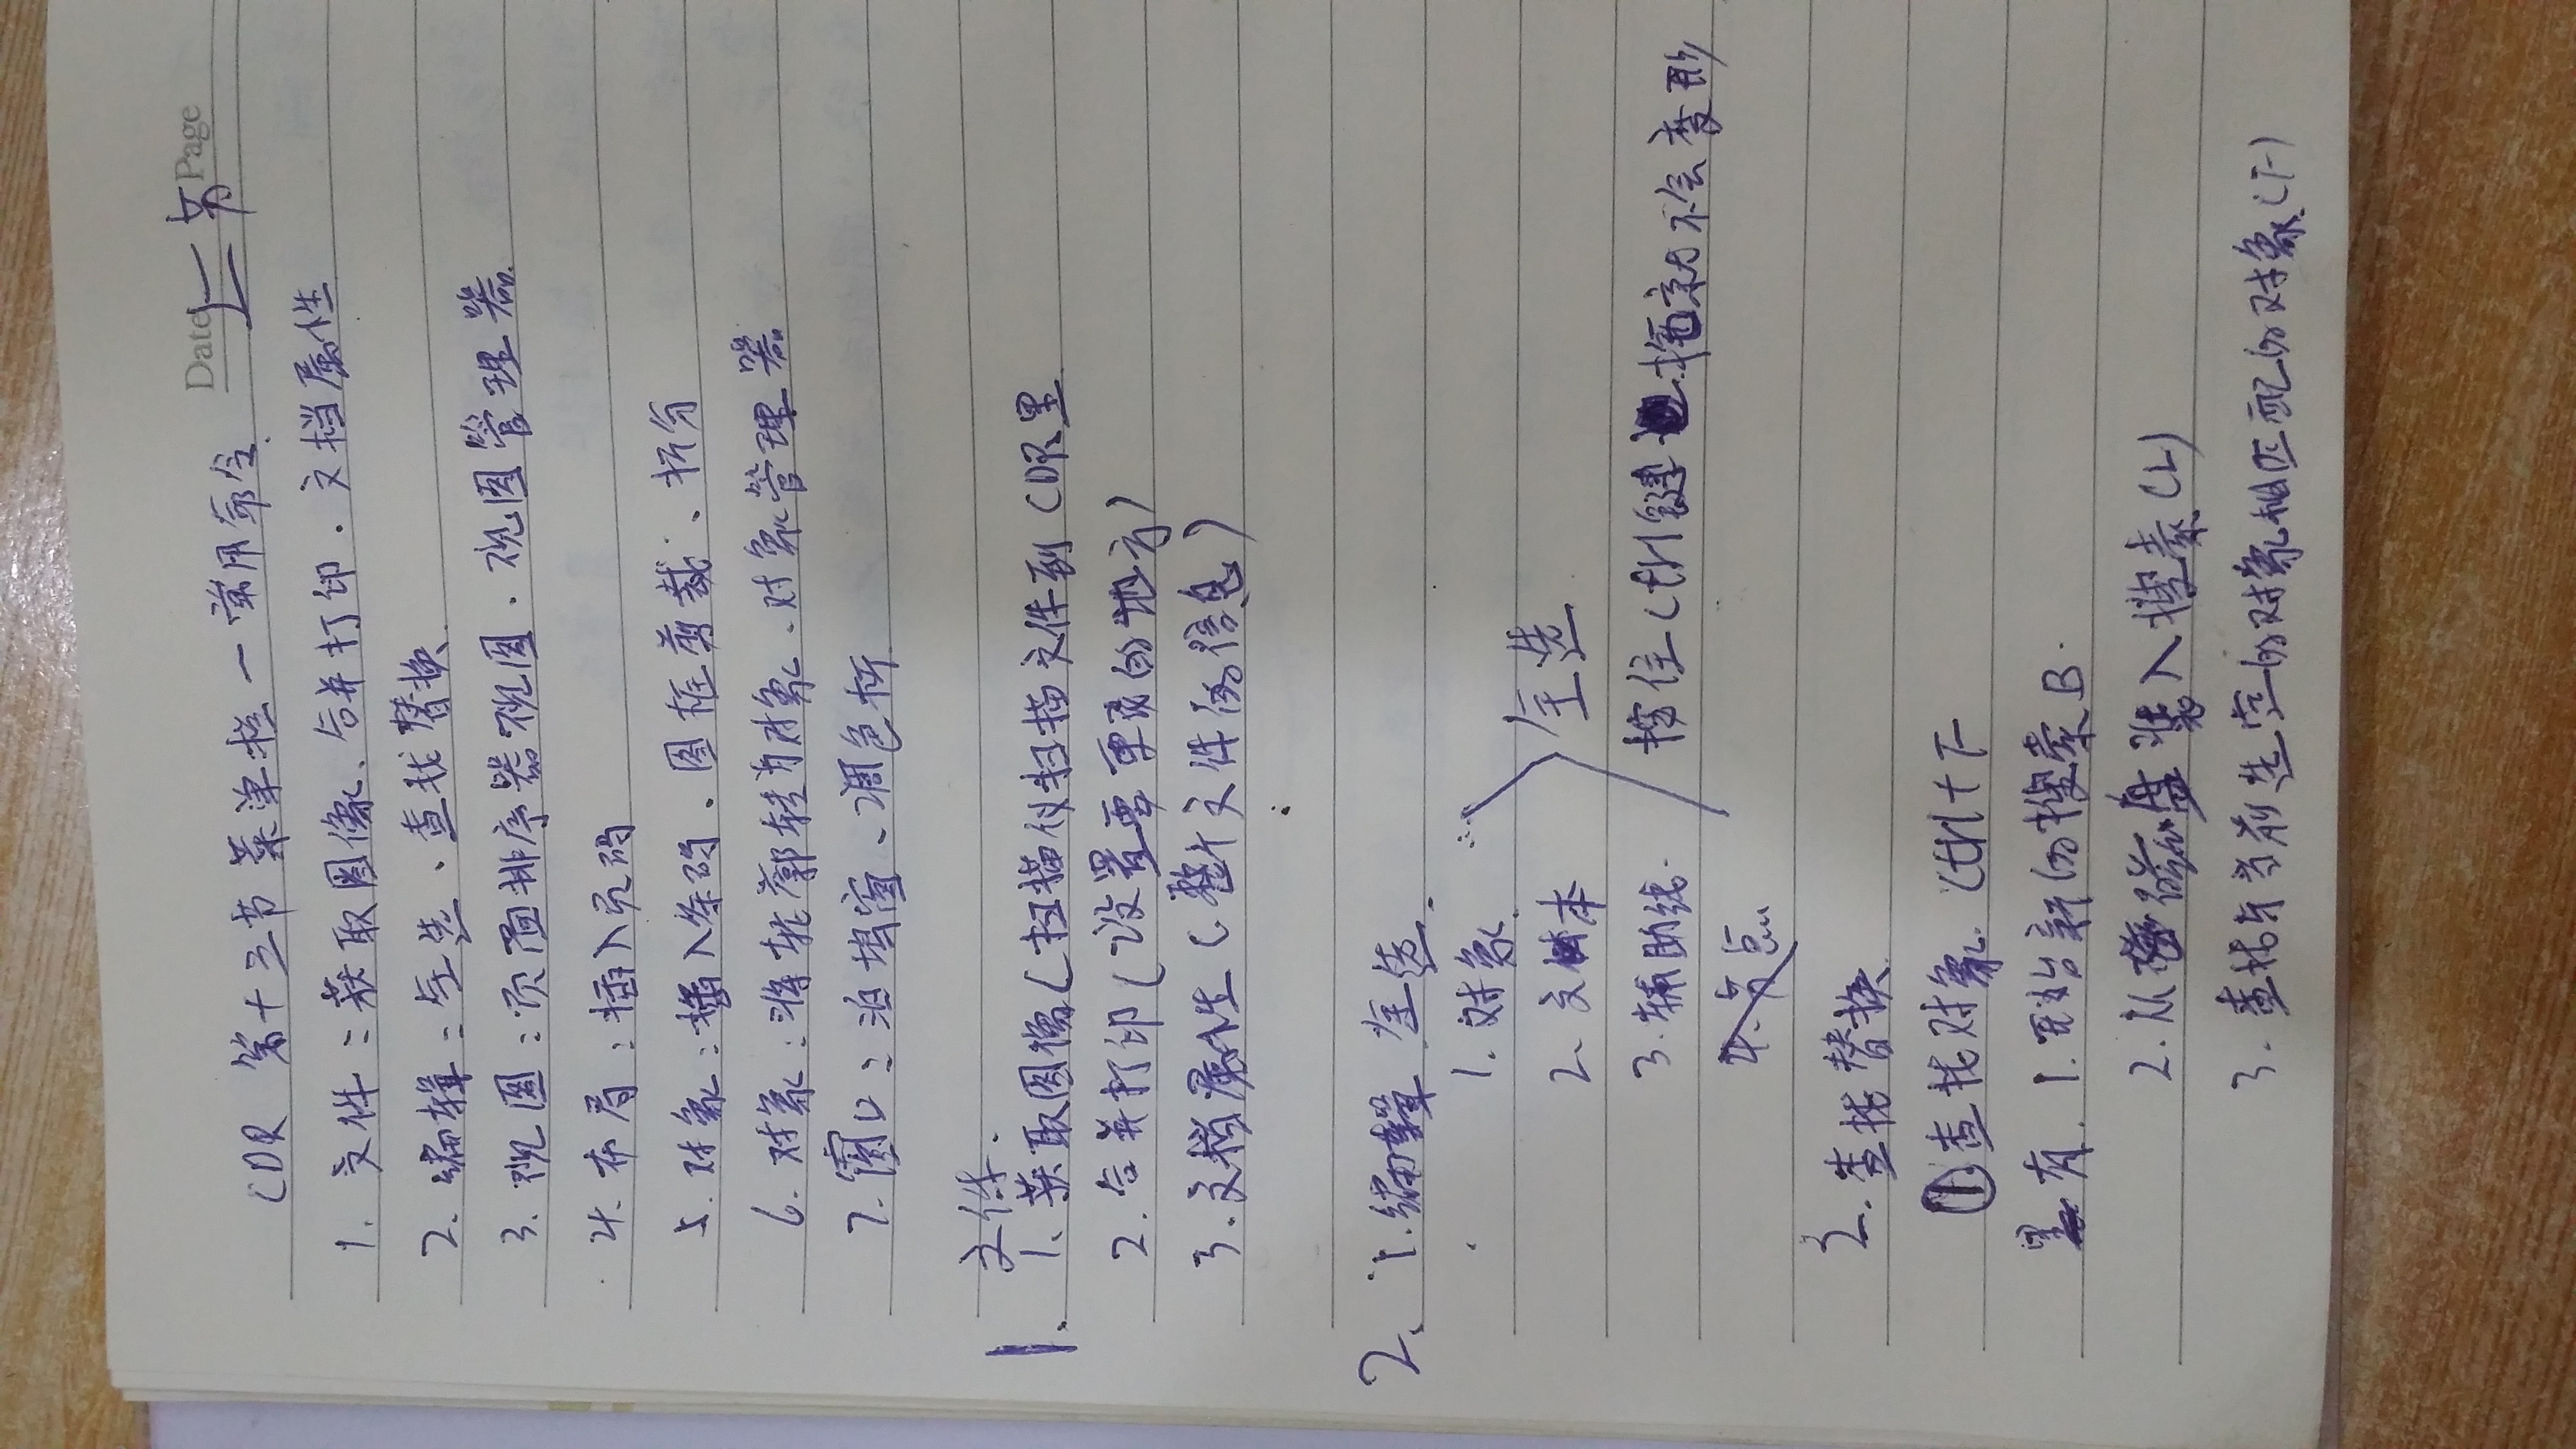 Date Page
CDR 第十三节 菜单栏一常用命令
1. 文件：获取图像、合并打印．文档属性
2. 编辑：全选、查找替换
3. 视图：页面排序器视图．视图管理器
4. 布局：插入页码
5. 对象：插入条码、图框剪裁、拆分
6. 对象：将轮廓转为对象、对象管理器
7. 窗口：泊坞窗、调色板
文件
1. 1. 获取图像（扫描仪扫描文件到CDR里
2. 合并打印（设置要更改的地方）
3. 文档属性（整个文件的信息）
2、1. 编辑 全选
1. 对象
2、文本 全选
3. 辅助线 按住Ctrl键 拖就不会变形
4. 节点
2. 查找替换
①查找对象 Ctrl+F
里有 1. 开始新的搜索B
2. 从磁盘装入搜索(L)
3. 查找与当前选定的对象相匹配的对象(F)